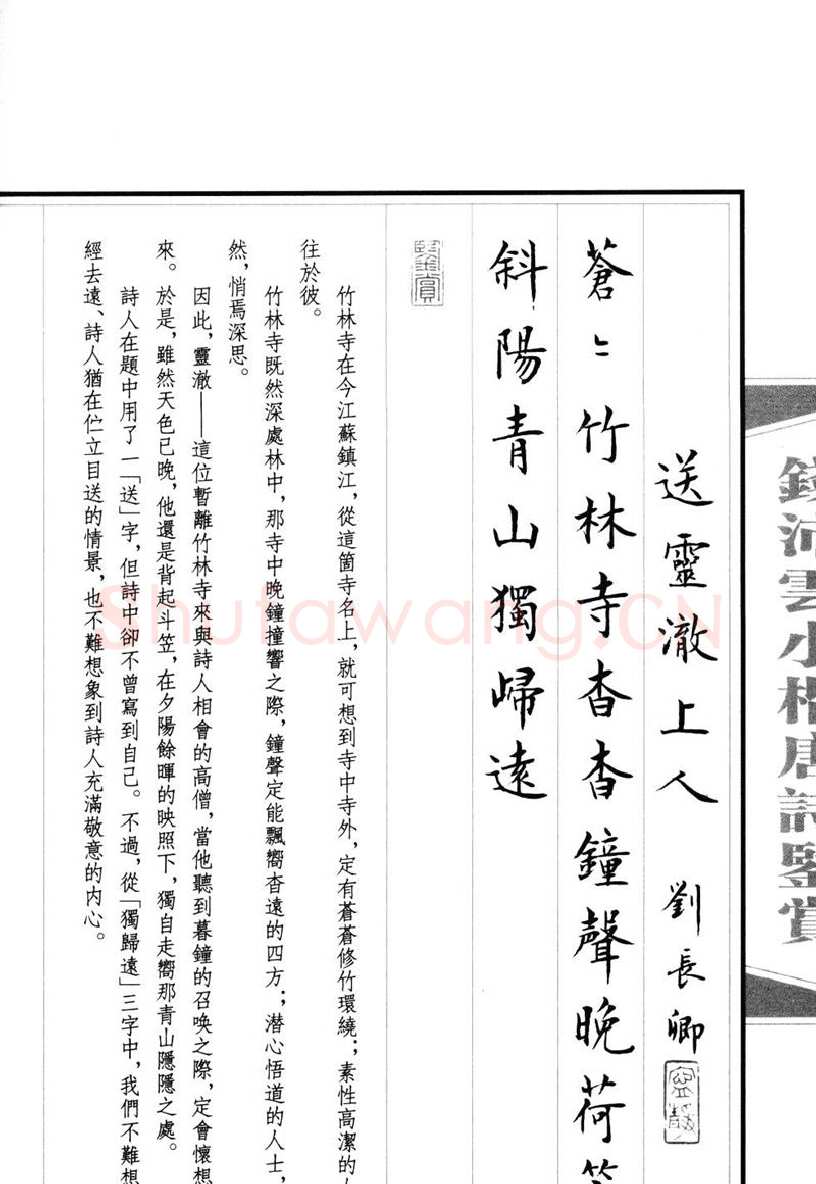 錢沛雲小楷唐詩鑒賞
送靈澈上人 劉長卿
蒼〻竹林寺杳杳鐘聲晚荷
斜陽青山獨歸遠
鑒賞
竹林寺在今江蘇鎮江，從這箇寺名上，就可想到寺中寺外，定有蒼蒼修竹環繞；素性高潔的
往於彼。
竹林寺既然深處林中，那寺中晚鐘撞響之際，鐘聲定能飄嚮杳遠的四方；潛心悟道的人士，
然，悄焉深思。
因此，靈澈——這位暫離竹林寺來與詩人相會的高僧，當他聽到暮鐘的召喚之際，定會懷想
來。於是，雖然天色已晚，他還是背起斗笠，在夕陽餘暉的映照下，獨自走嚮那青山隱隱之處。
詩人在題中用了一「送」字，但詩中卻不曾寫到自己。不過，從「獨歸遠」三字中，我們不難想
經去遠、詩人猶在伫立目送的情景，也不難想象到詩人充滿敬意的内心。
Shufawang.CN